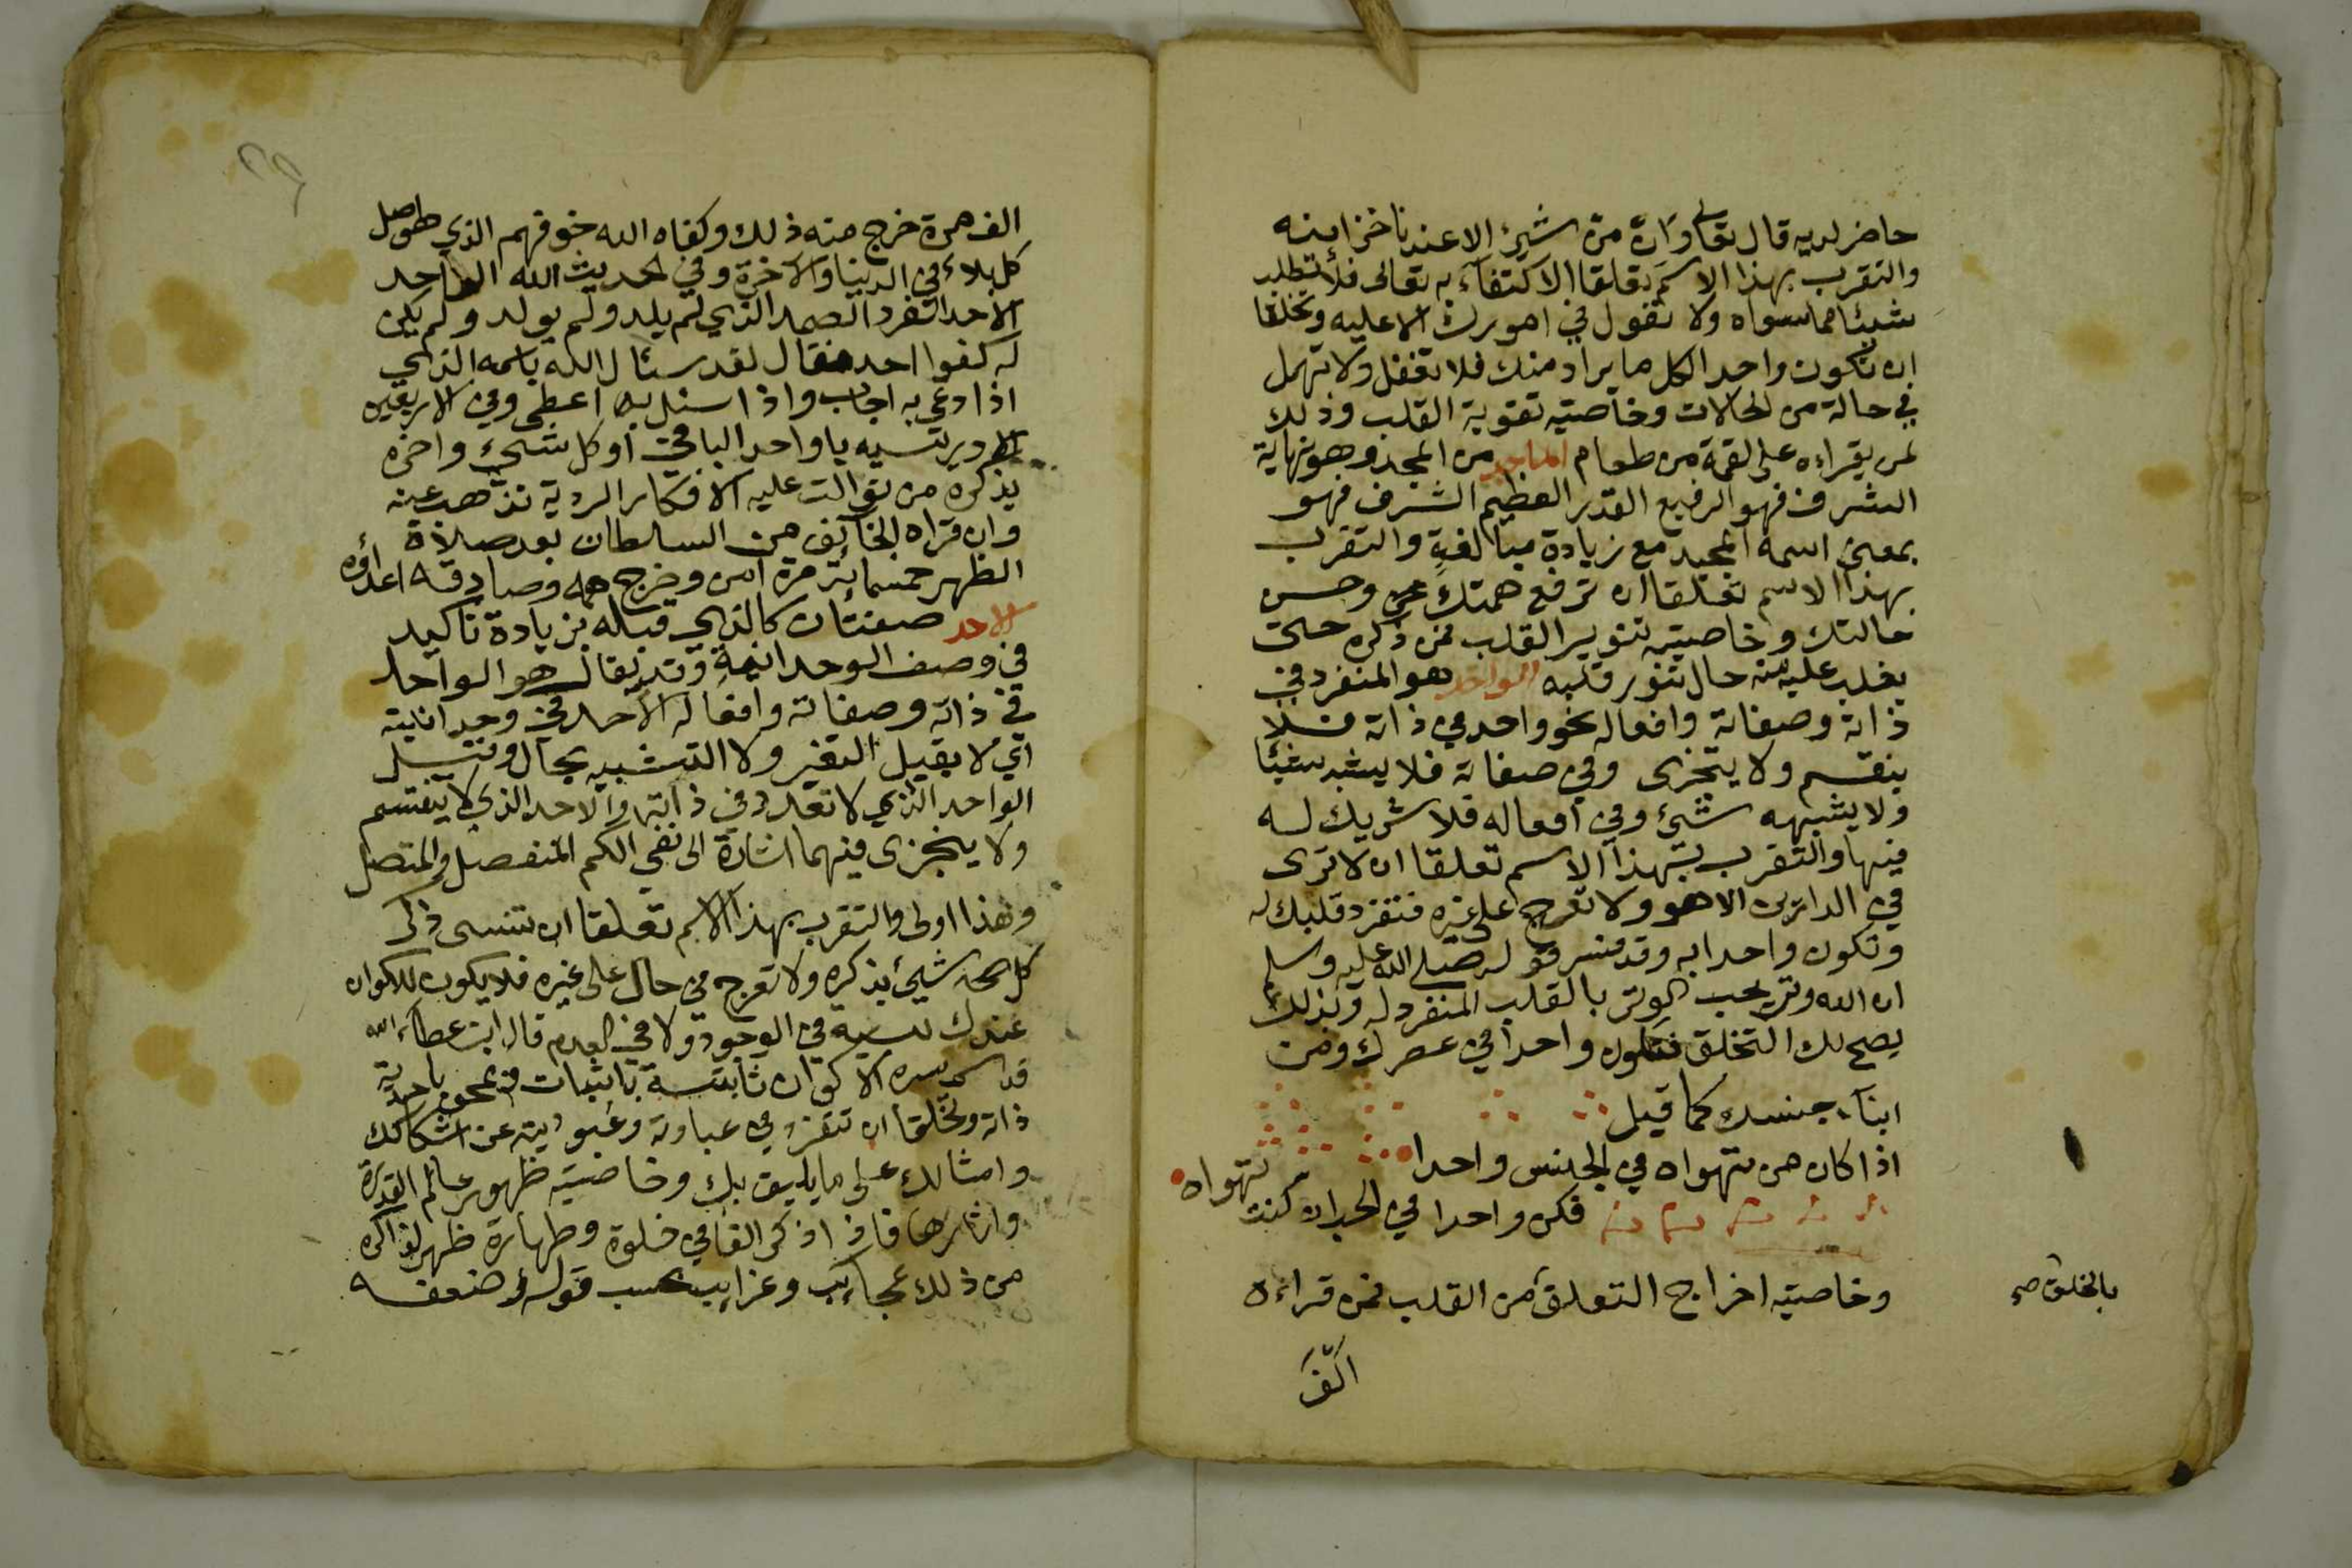 حاضر لديه قال تعالى وان من شيئ الا عندنا خزاينه
والتقرب بهذا الاسم تعلقا الاكتفاء به تعالى فلا تطلب
شيئا مما سواه ولا تقول في امورك الا عليه وتخلقا
ان تكون واحد الكل ما يراد منك فلا تغفل ولا تهمل
في حالة من الحالات وخاصيته تقوية القلب وذلك
لمن يقراءه على لقمة من طعام الماجد من المجد وهو نهاية
الشرف فهو الرفيع القدر العظيم الشرف فهو
بمعنى اسمه المجيد مع زيادة مبالغة والتقرب
بهذا الاسم تعلقا ان ترفع همتك عن وحسن
حالتك وخاصيته تنوير القلب فمن ذكره حتى
يغلب عليه منه حال تنور قلبه الواحد هو المنفرد في
ذاته وصفاته وافعاله نحو واحد في ذاته فلا
ينقسم ولا يتجزى وفي صفاته فلا يشبه شيئا
ولا يشبهه شئ وفي افعاله فلا شريك له
فيها والتقرب بهذا الاسم تعلقا ان لا ترى
في الدارين الا هو ولا تعرج على غيره فتفرد قلبك له
وتكون واحدا به وقد فسر قوله صلى الله عليه وسلم
ان الله وتر يحب الوتر بالقلب المنفرد له وبذلك
يصح لك التخلق فتكون واحدا في عصرك ومن
ابناء جنسك كما قيل
اذا كان من تهواه في الجنس واحدا
فكن واحدا في الحب ان كنت تهواه
وخاصيته اخراج التعلق من القلب فمن قراءه
بالخلق صح
الف
الف مرة خرج منه ذلك وكفاه الله خوفهم الذي هو اصل
كل بلاء في الدنيا والاخرة وفي الحديث الله الواحد
الاحد الفرد الصمد الذي لم يلد ولم يولد ولم يكن
له كفوا احد فقال لقد سئال الله باسمه الذي
اذا دعي به اجاب واذا سئل به اعطى وفي الاربعين
الادريسيه يا واحد الباقي اول كل شيئ واخره
يذكره من توالت عليه الافكار الردية تذهب عنه
وان قراه الخايف من السلطان بعد صلاة
الظهر خمسماية مرة امن وفرج همه وصادقه اعداؤه
الاحد صفتان كالذي قبله بزيادة تاكيد
في وصف الوحدانية وقد يقال هو الواحد
في ذاته وصفاته وافعاله الاحد في وحدانيته
اي لا يقبل التغير ولا التشبيه بحال وقيل
الواحد الذي لا تعدد في ذاته والاحد الذي لا ينقسم
ولا يتجزى فيهما اشارة الى نفي الكم المنفصل والمتصل
وهذا اولى والتقرب بهذا الاسم تعلقا ان تنسى ذكر
كل شيئ بذكره ولا تعرج في حال على غيره فلا يكون للاكوان
عندك نسبة في الوجود ولا في العدم قال ابن عطاء الله
قدس سره الاكوان ثابتة باثباته وممحوة باحدية
ذاته وتخلقا ان تتفرد في عبادته وعبوديته عن اشكالك
وامثالك على ما يليق بك وخاصيته ظهور عالم القدرة
واثارها فاذا ذكر الفا في خلوة وطهارة ظهر لذاكره
من ذلك عجايب وغرايب بحسب قوله وضعفه